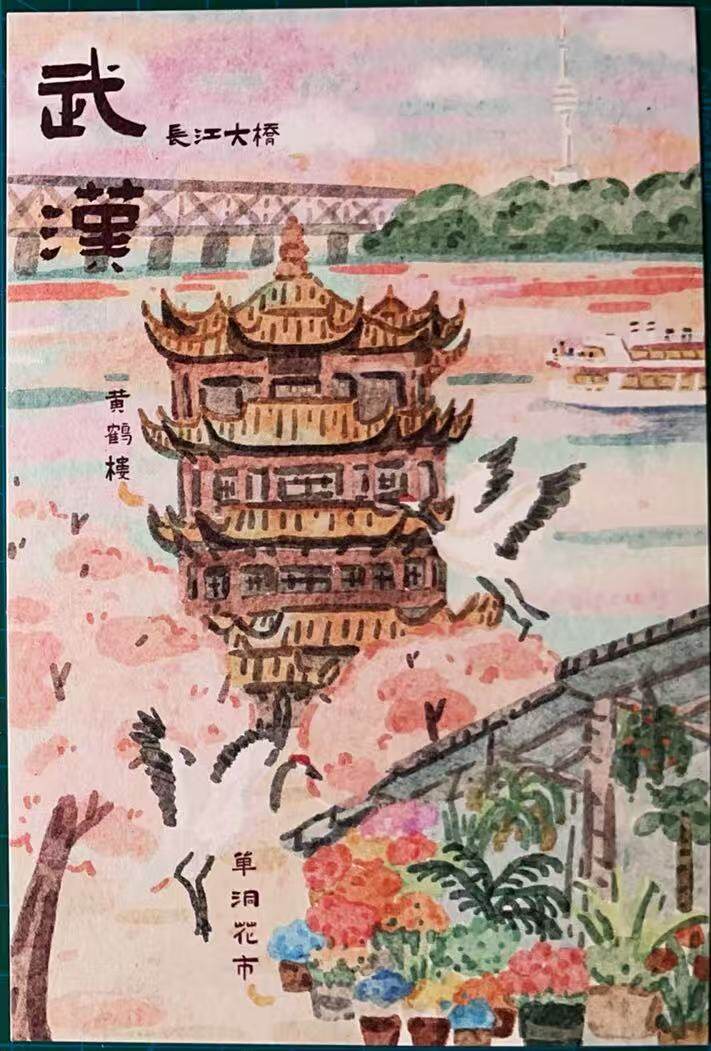 武漢
長江大橋
黄鶴樓
單洞花市